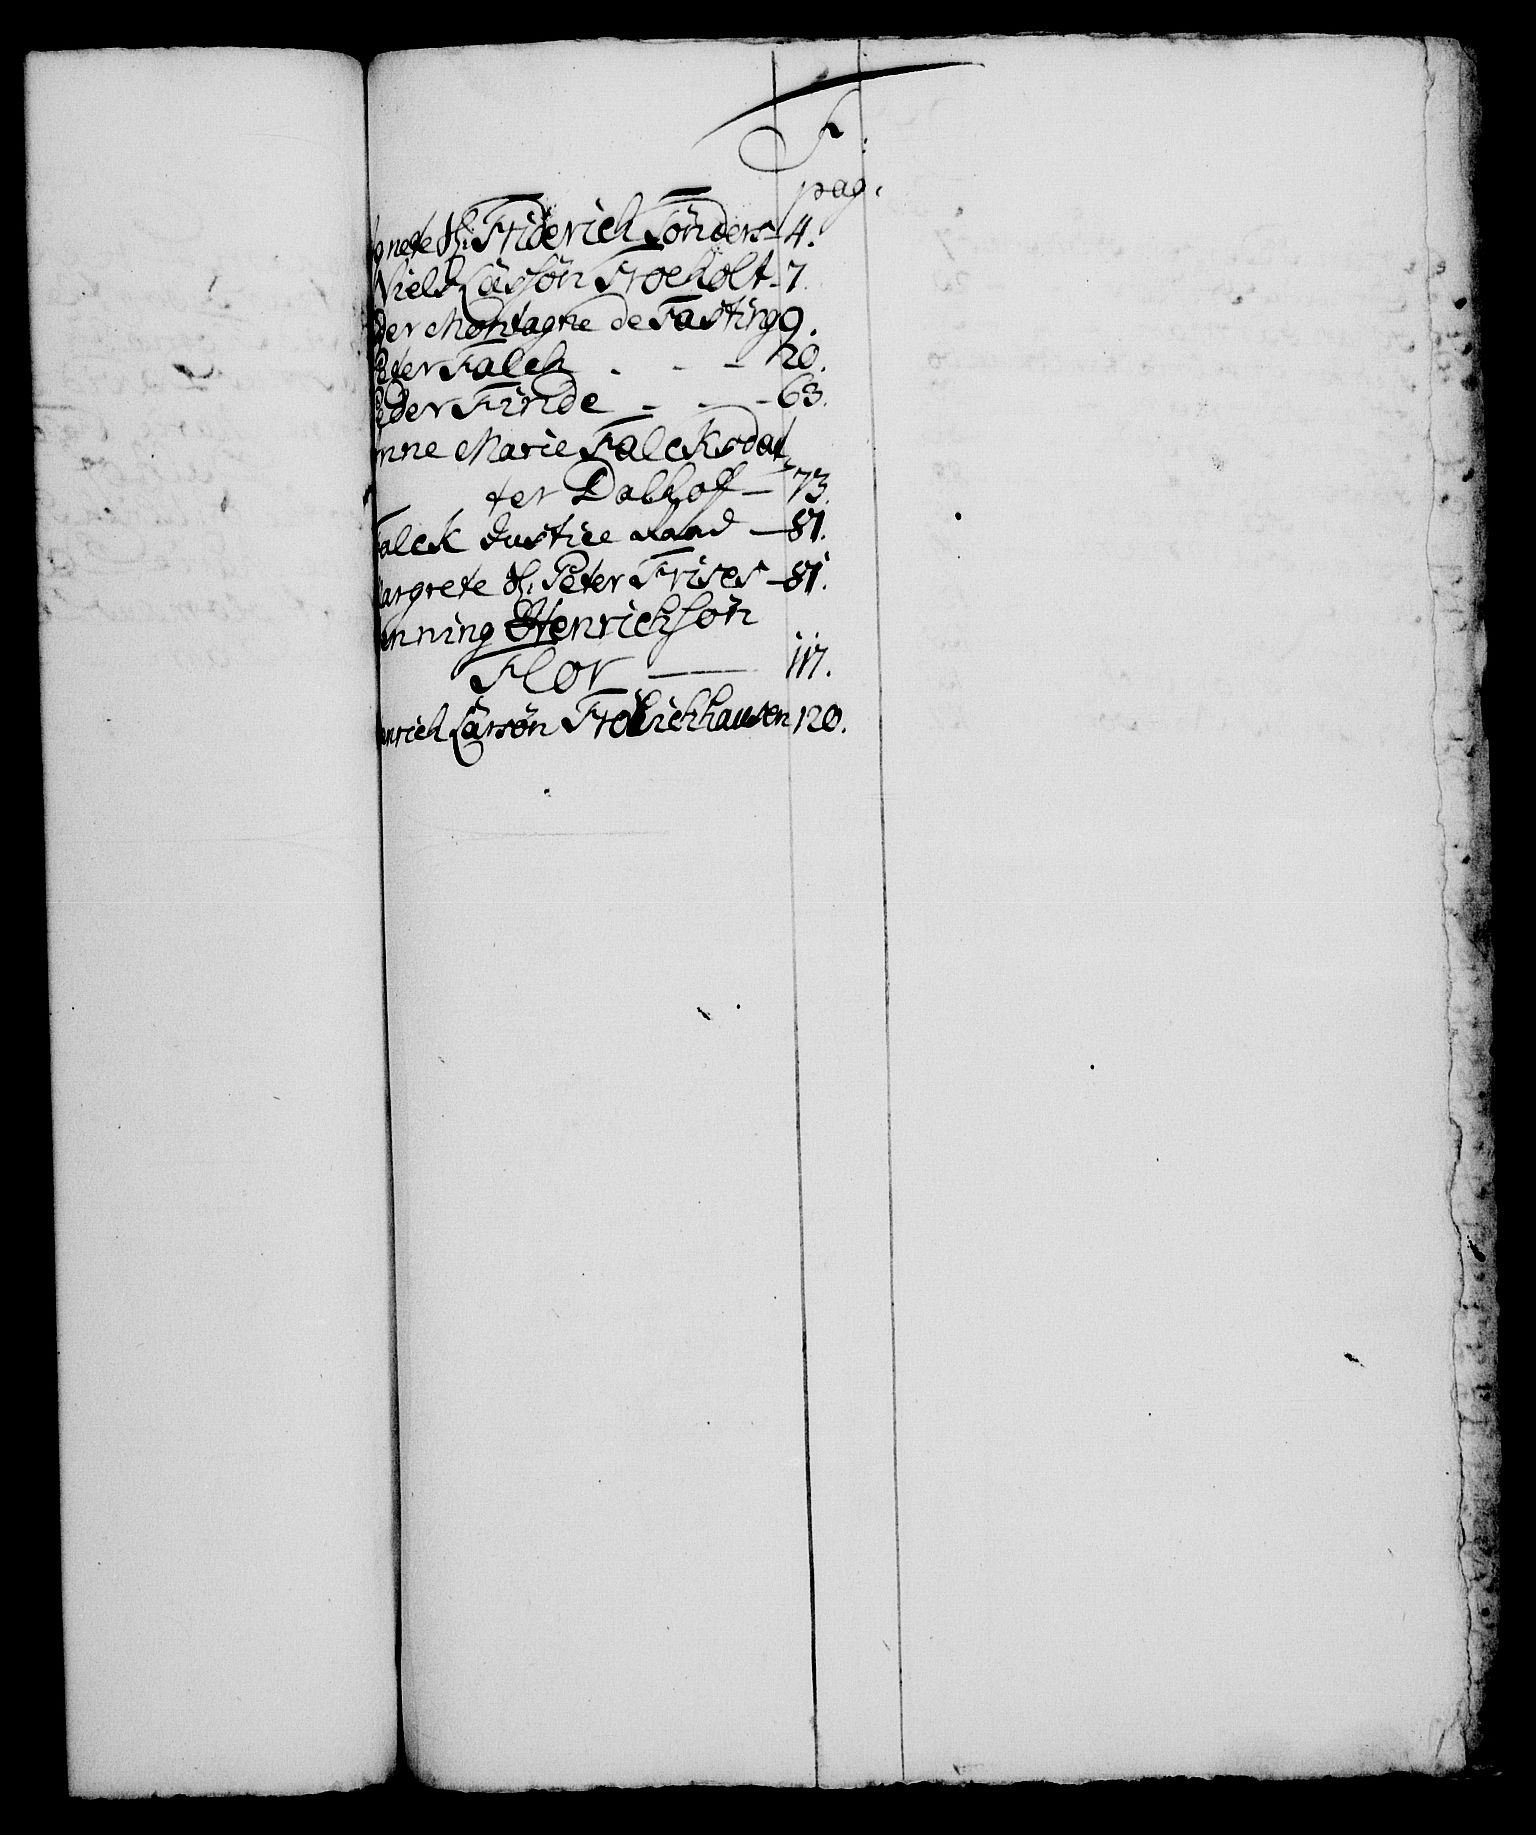 F.
pag.
gnete Hr. Friderich Tönders 4.
Niels Larssön Froeholt 7.
der Montagne de Fasting 9.
Peter Falch - - - 20.
Peder Finde - - - 63.
nne Marie Falcksdat
ter Dalhoff - 73.
Falck Justice Raad - 87.
argrete Hr. Peter Frises - 87.
enning Henrichsön
Flor - 117.
enrich Larsön Frolichhausen 120.